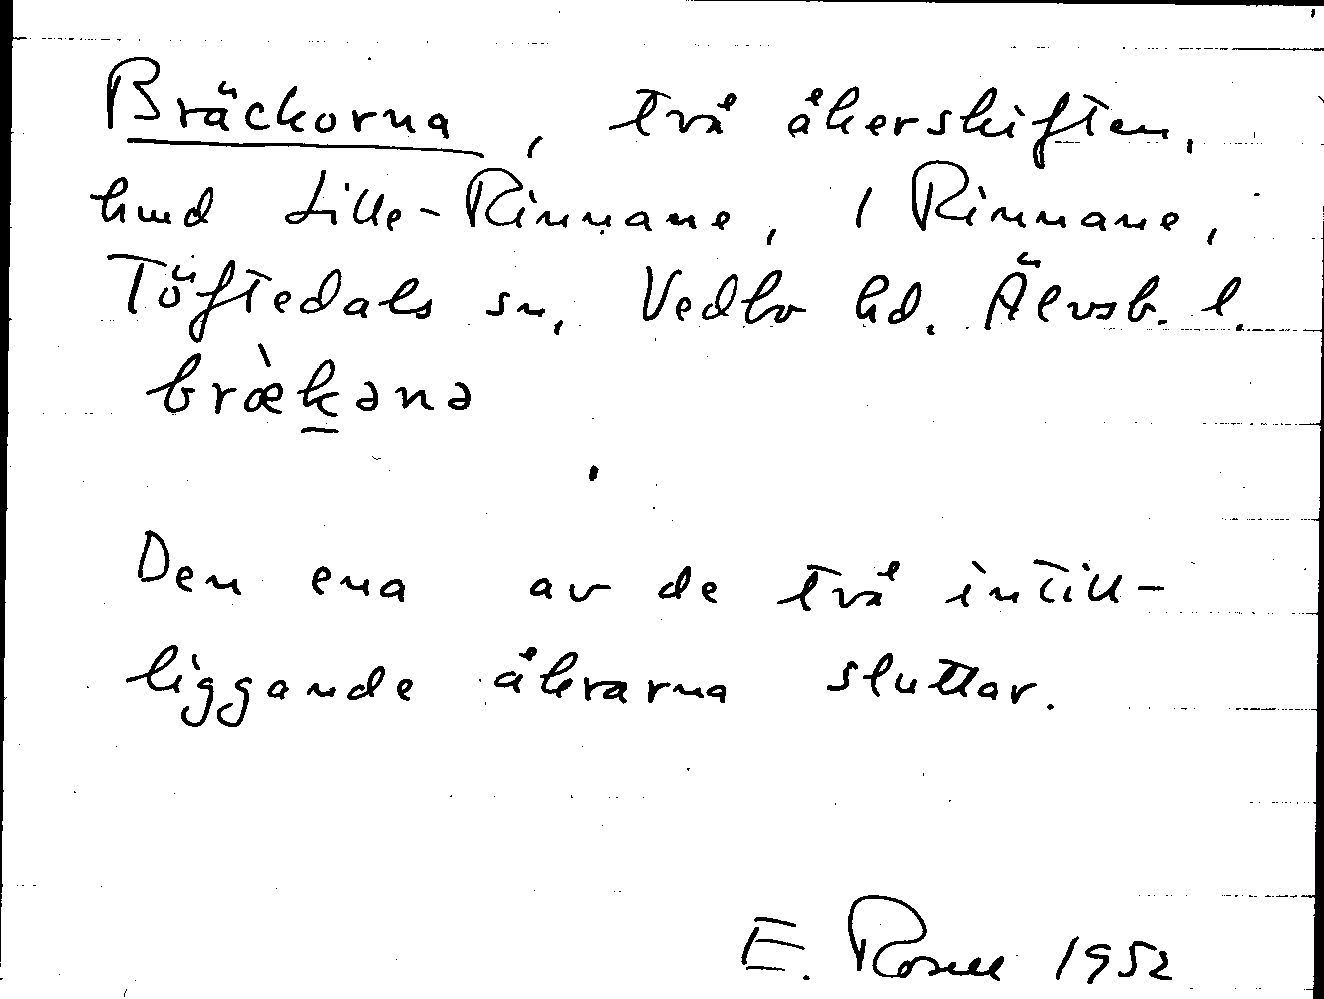 Bräckorna, två åkerskiften,
hmd Lille-Rinnane, 1 Rinnane,
Töftedals sn, Vedbo hd. Älvsb. l.
bræ̀k̲ənə
Den ena av de två intill-
liggande åkrarna sluttar.
E. Rosell 1952